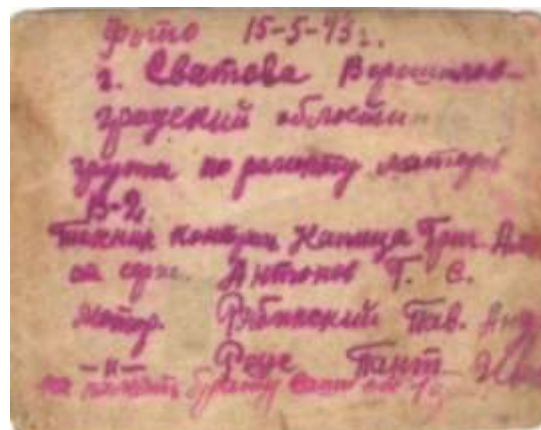 фото 15-5-43г.
г. Сватова Ворошилов-
градский области
група по ремонту мотор
В-2
Техник контрол Капица Григ.
Антонов Г. С.
мотор. Рябинский Пав. Анд
-"- Реус Пант
на память брату